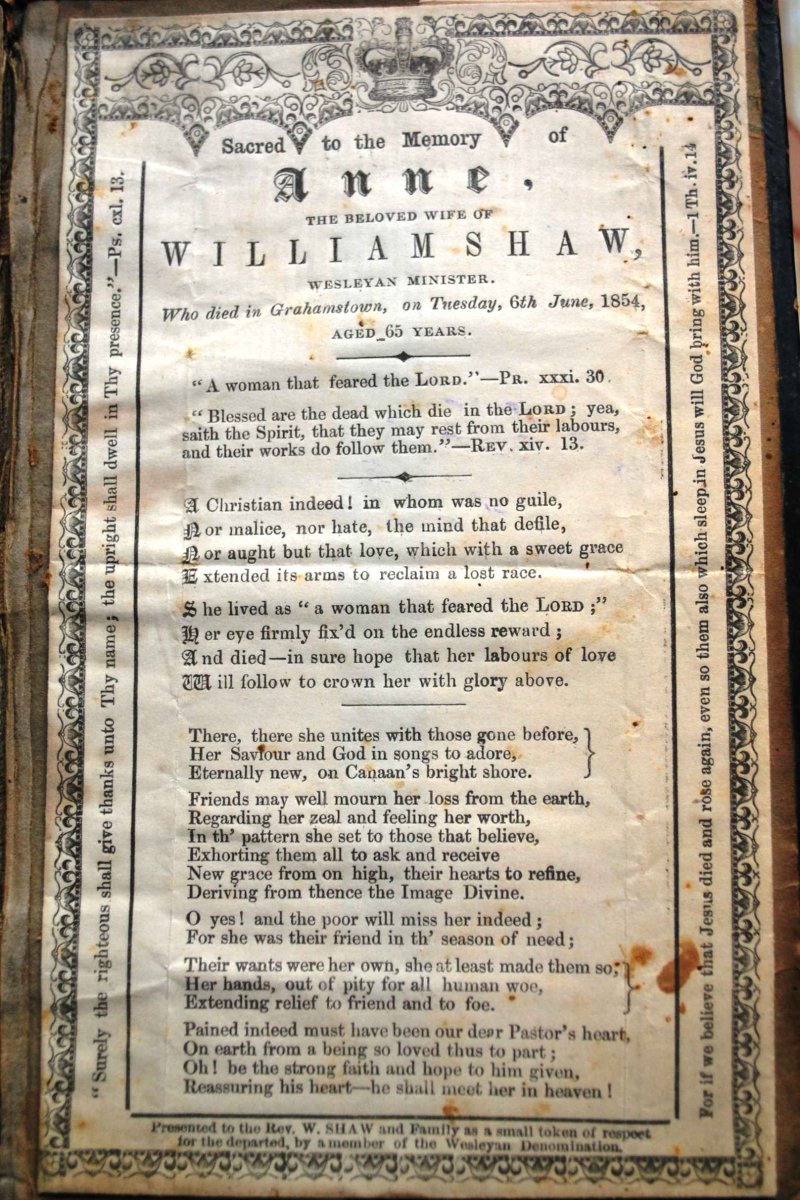 Sacred to the Memory of
Anne,
THE BELOVED WIFE OF
WILLIAM SHAW,
WESLEYAN MINISTER.
Who died in Grahamstown, on Tuesday, 6th June, 1854,
AGED 65 YEARS.
"A woman that feared the LORD."—PR. xxxi. 30.
"Blessed are the dead which die in the LORD; yea,
saith the Spirit, that they may rest from their labours,
and their works do follow them."—REV. xiv. 13.
A Christian indeed! in whom was no guile,
Nor malice, nor hate, the mind that defile,
Nor aught but that love, which with a sweet grace
Extended its arms to reclaim a lost race.
She lived as "a woman that feared the LORD;"
Her eye firmly fix'd on the endless reward;
And died—in sure hope that her labours of love
Will follow to crown her with glory above.
There, there she unites with those gone before,
Her Saviour and God in songs to adore,
Eternally new, on Canaan's bright shore.
Friends may well mourn her loss from the earth,
Regarding her zeal and feeling her worth,
In th' pattern she set to those that believe,
Exhorting them all to ask and receive
New grace from on high, their hearts to refine,
Deriving from thence the Image Divine.
O yes! and the poor will miss her indeed;
For she was their friend in th' season of need;
Their wants were her own, she at least made them so;
Her hands, out of pity for all human woe,
Extending relief to friend and to foe.
Pained indeed must have been our dear Pastor's heart,
On earth from a being so loved thus to part;
Oh! be the strong faith and hope to him given,
Reassuring his heart—he shall meet her in heaven!
Presented to the Rev. W. SHAW and Family as a small token of respect
for the departed, by a member of the Wesleyan Denomination.
"Surely the righteous shall give thanks unto Thy name; the upright shall dwell in Thy presence."—Ps. cxl. 13.
For if we believe that Jesus died and rose again, even so them also which sleep in Jesus will God bring with him.—1 Th. iv. 14